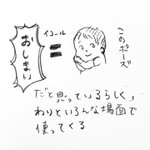 このポーズ
イコール
おしまい
=
だと思っているらしく、
わりといろんな場面で
使ってくる